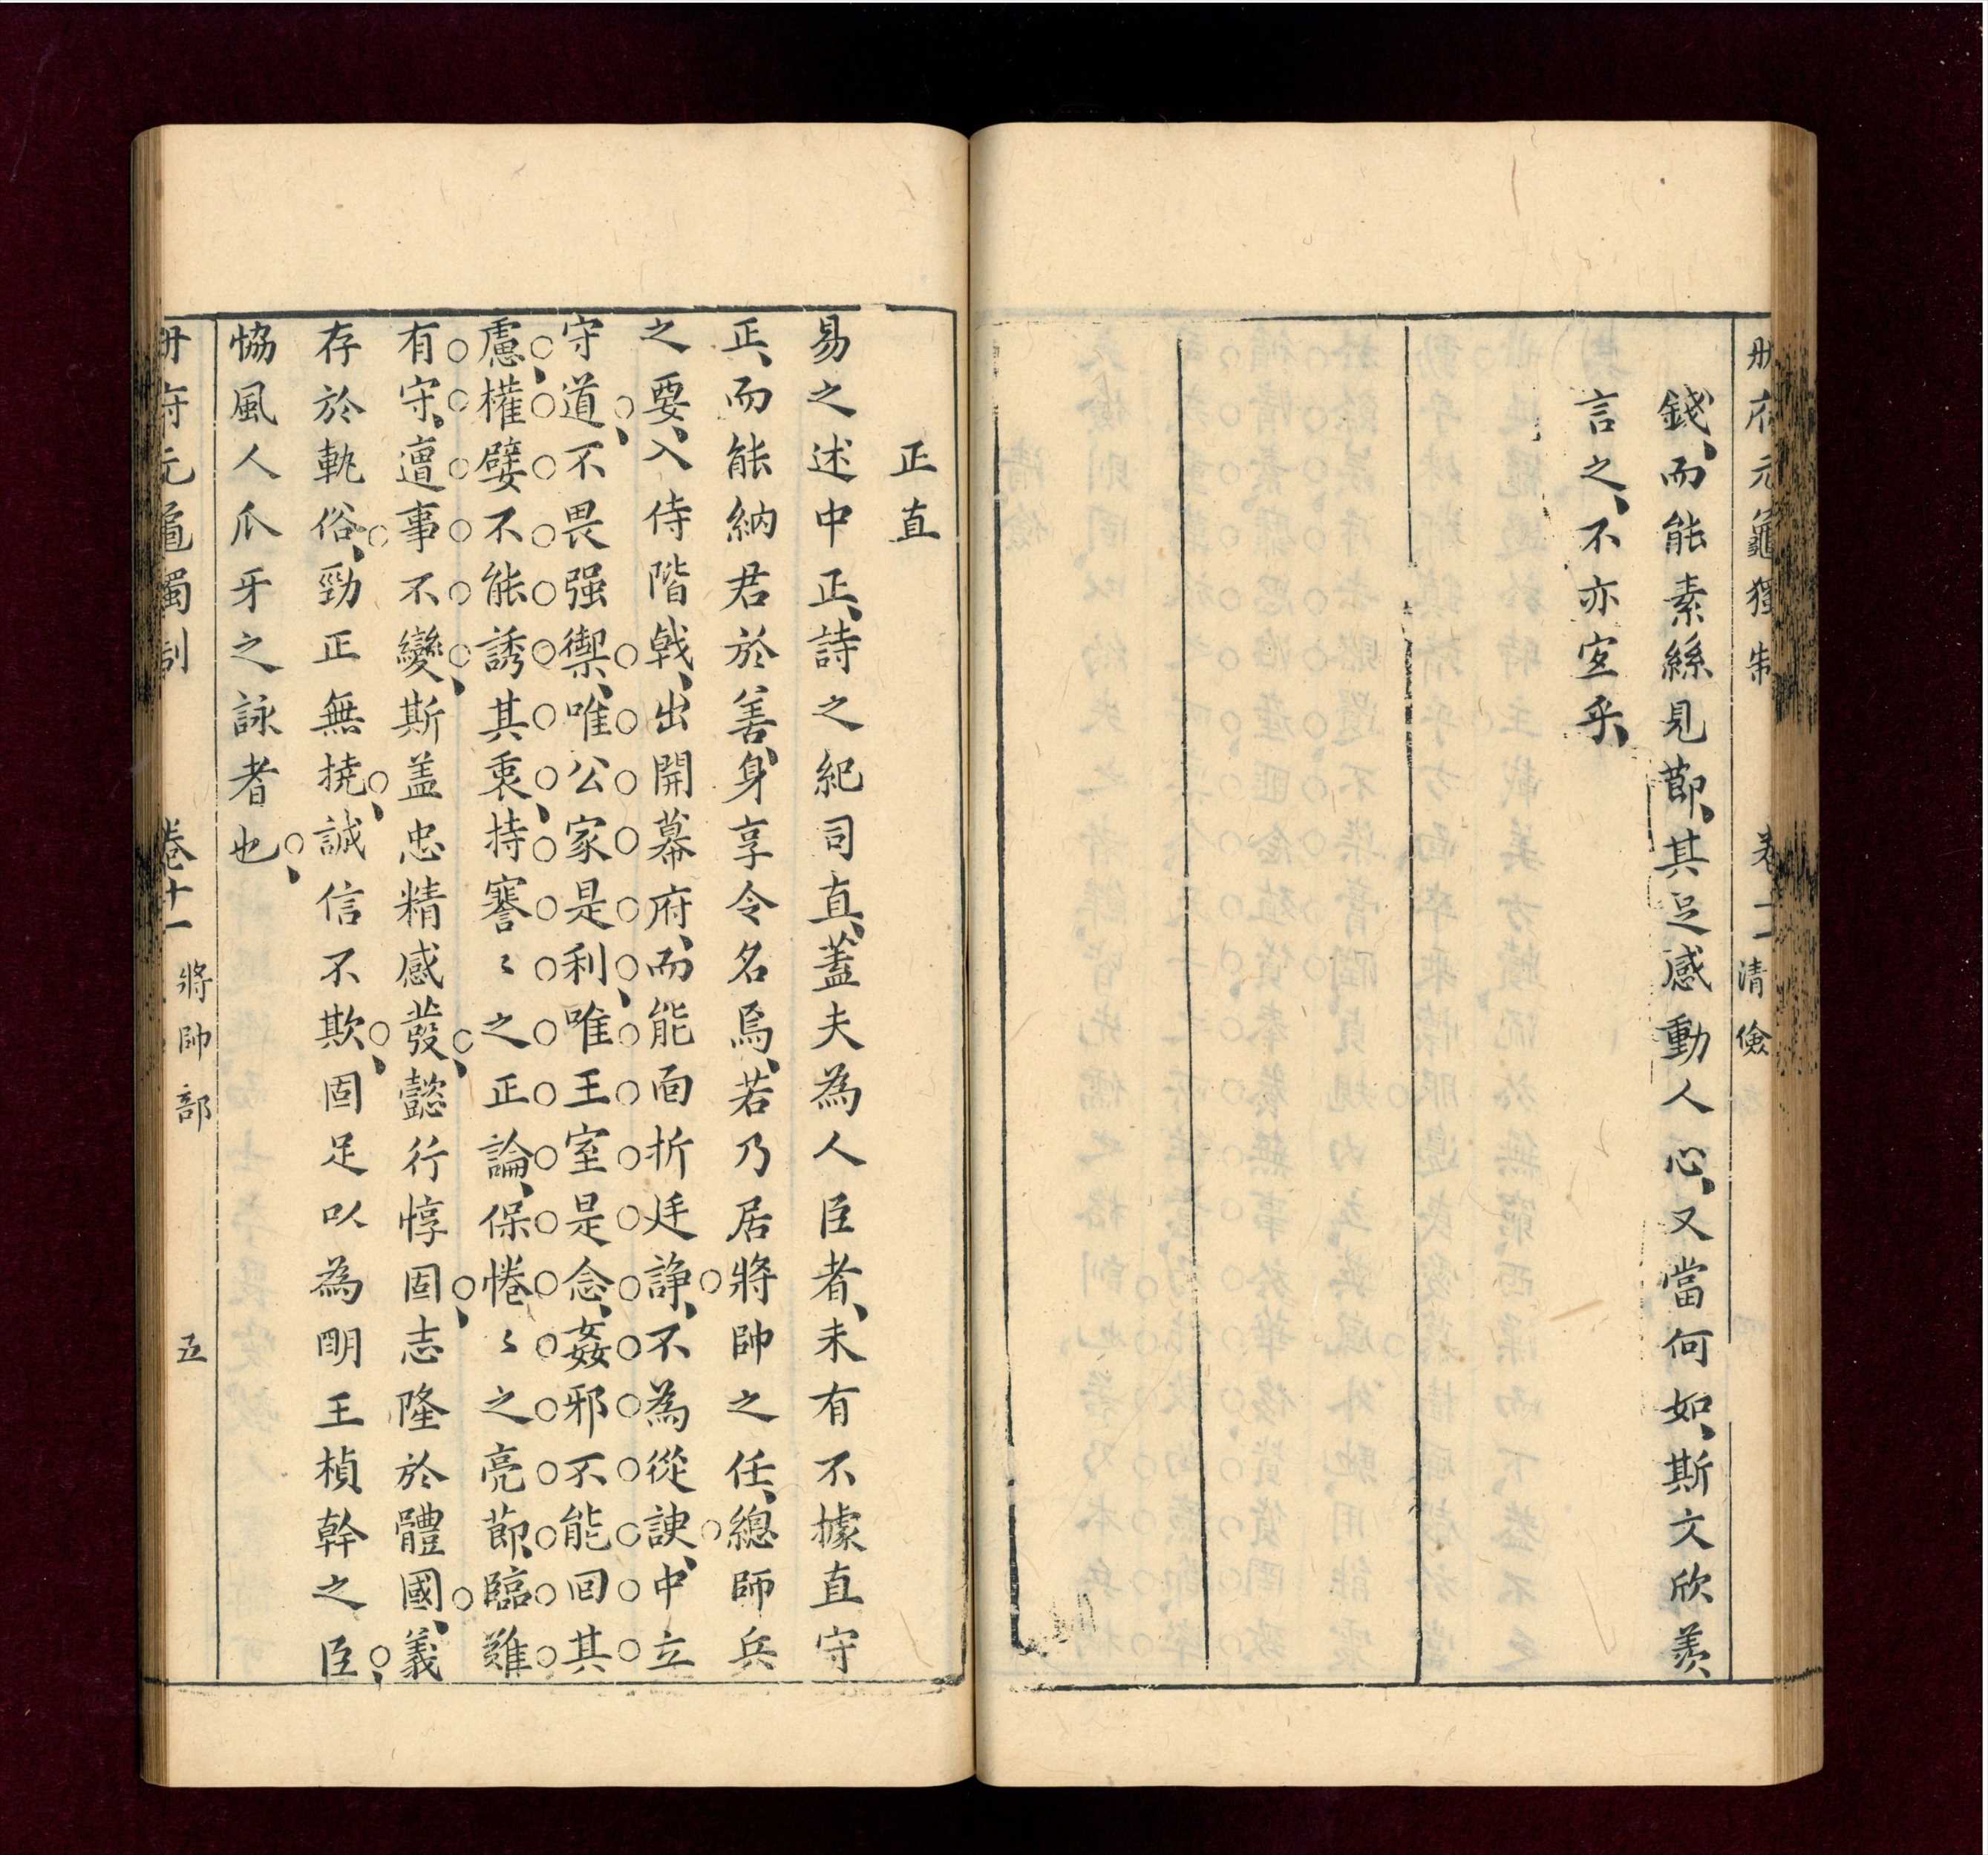 册府元龜獨制 卷十一 清儉
錢、而能素絲見節、其足感動人心、又當何如、斯文欣羨、
言之、不亦宜乎、
正直
易之述中正、詩之紀司直、蓋夫為人臣者、未有不據直守
正、而能納君於善、身享令名焉、若乃居將帥之任、總師兵
之要、入侍階戟、出開幕府、而能面折廷諍、不為從諛、中立
守道、不畏强禦、唯公家是利唯王室是念、姦邪不能回其
慮、權嬖不能誘其衷、持謇〻之正論、保惓〻之亮節、臨難
有守、遭事不變、斯盖忠精感發、懿行惇固、志隆於體國、義
存於軌俗、勁正無撓、誠信不欺、固足以為明王楨幹之臣、
恊風人爪牙之詠者也、
册府元龜獨制 卷十一 將帥部 五